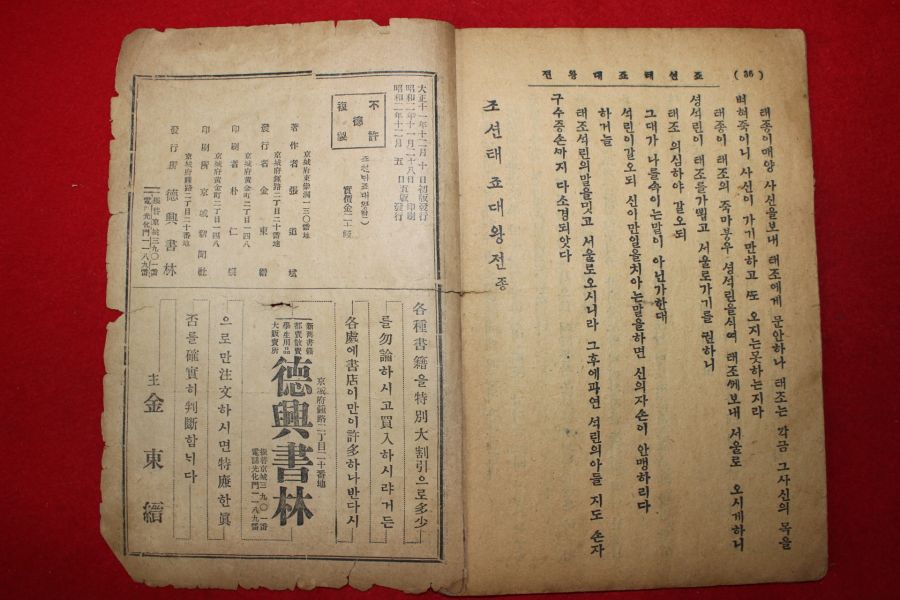 (36) 전왕대죠태션죠
태종이매양 사신을보내 태조에게 문안하나 태조는 각금 그사신의 목을
벼혀죽이니 사신이 가기만하고 또 오지는못하는지라
태종이 태조의 죽마붕우 셩셕린을식여 태조께보내 서울로 오시게하니
셩셕린이 태조를가뵙고 서울로가기를 권하니
태조 의심하야 갈오되
그대가 나를속이는말이 아닌가한대
석린이갈오되 신이만일을치아는말을하면 신의자손이 안맹하리다
하거늘
태조석린의말을밋고 서울로오시니라 그후에과연 석린의아들 지도 손자
구수증손까지 다소경되얏다
조선태죠대왕전종
大正十一年十二月十日初版發行
昭和二年十一月二十八日五版印刷
昭和二年十二月 五 日五版發行
不許
複製
德
實價金二十錢
京城府東崇洞一三〇番地
著作者 張道斌
京城府鍾路二丁目二十番地
發行者 金東縉
京城府黃金町二丁目一四八
印刷者 朴仁煥
京城府黃金町二丁目一四八
印刷所 京城新聞社
京城府鍾路二丁目二十番地
發行所 德興書林
振替京城三九〇一番
電話光化門一一八九番
各種書籍을特別大割引으로多少
를勿論하시고買入하시랴거든
各處에書店이만이許多하나반다시
京城府鍾路二丁目二十番地
新舊書籍
都賣散賣
學生用品
大販賣所
德興書林
振替京城三九〇一番
電話光化門一一八九番
으로만注文하시면特應한眞
否를確實히判斷함니다
主 金東縉